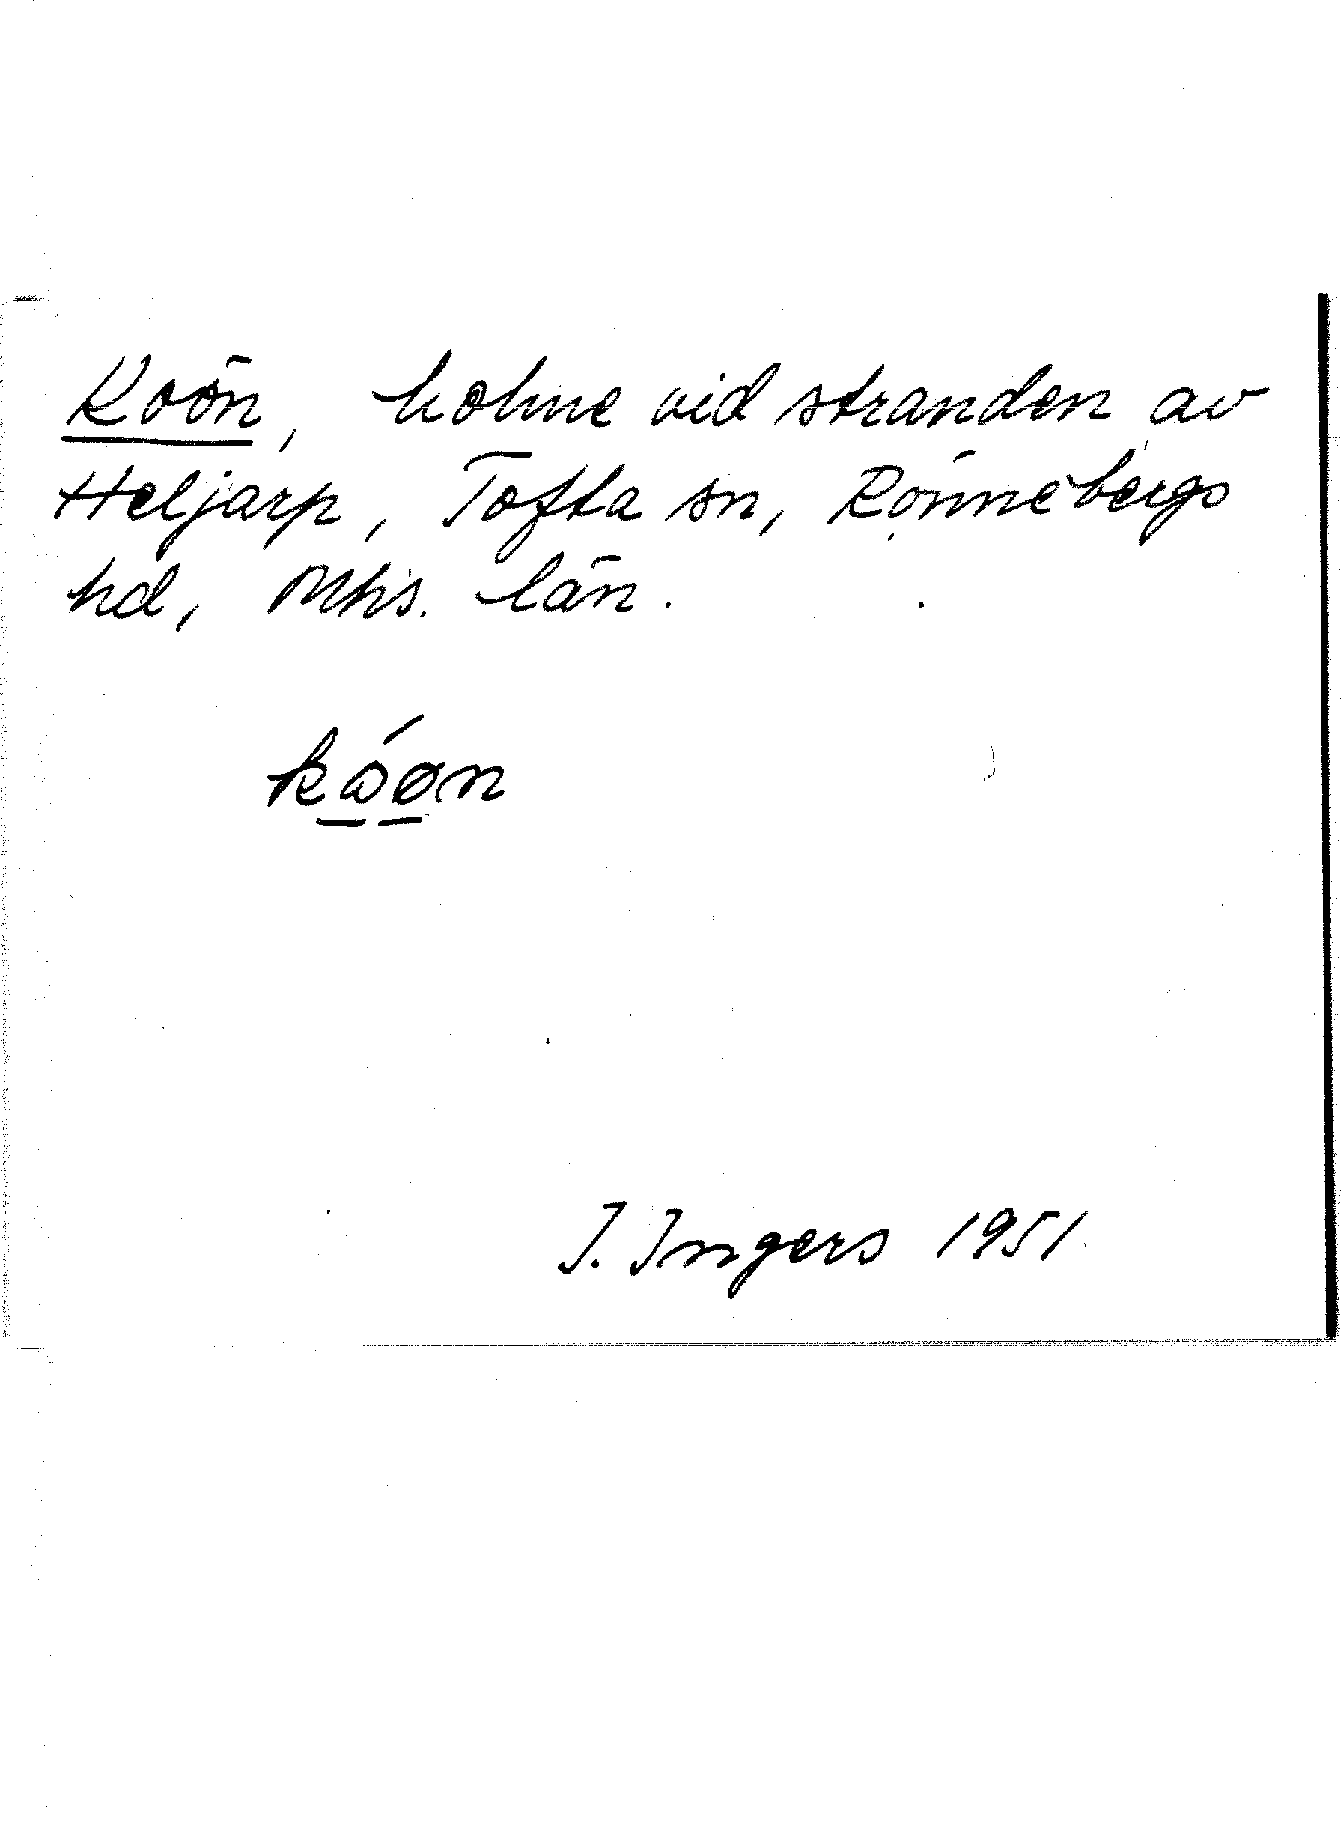 Koön, holme vid stranden av
Heljarp, Tofta sn, Rönnebergs
hd, Mhs. län.
kǿøn
I. Ingers 1951